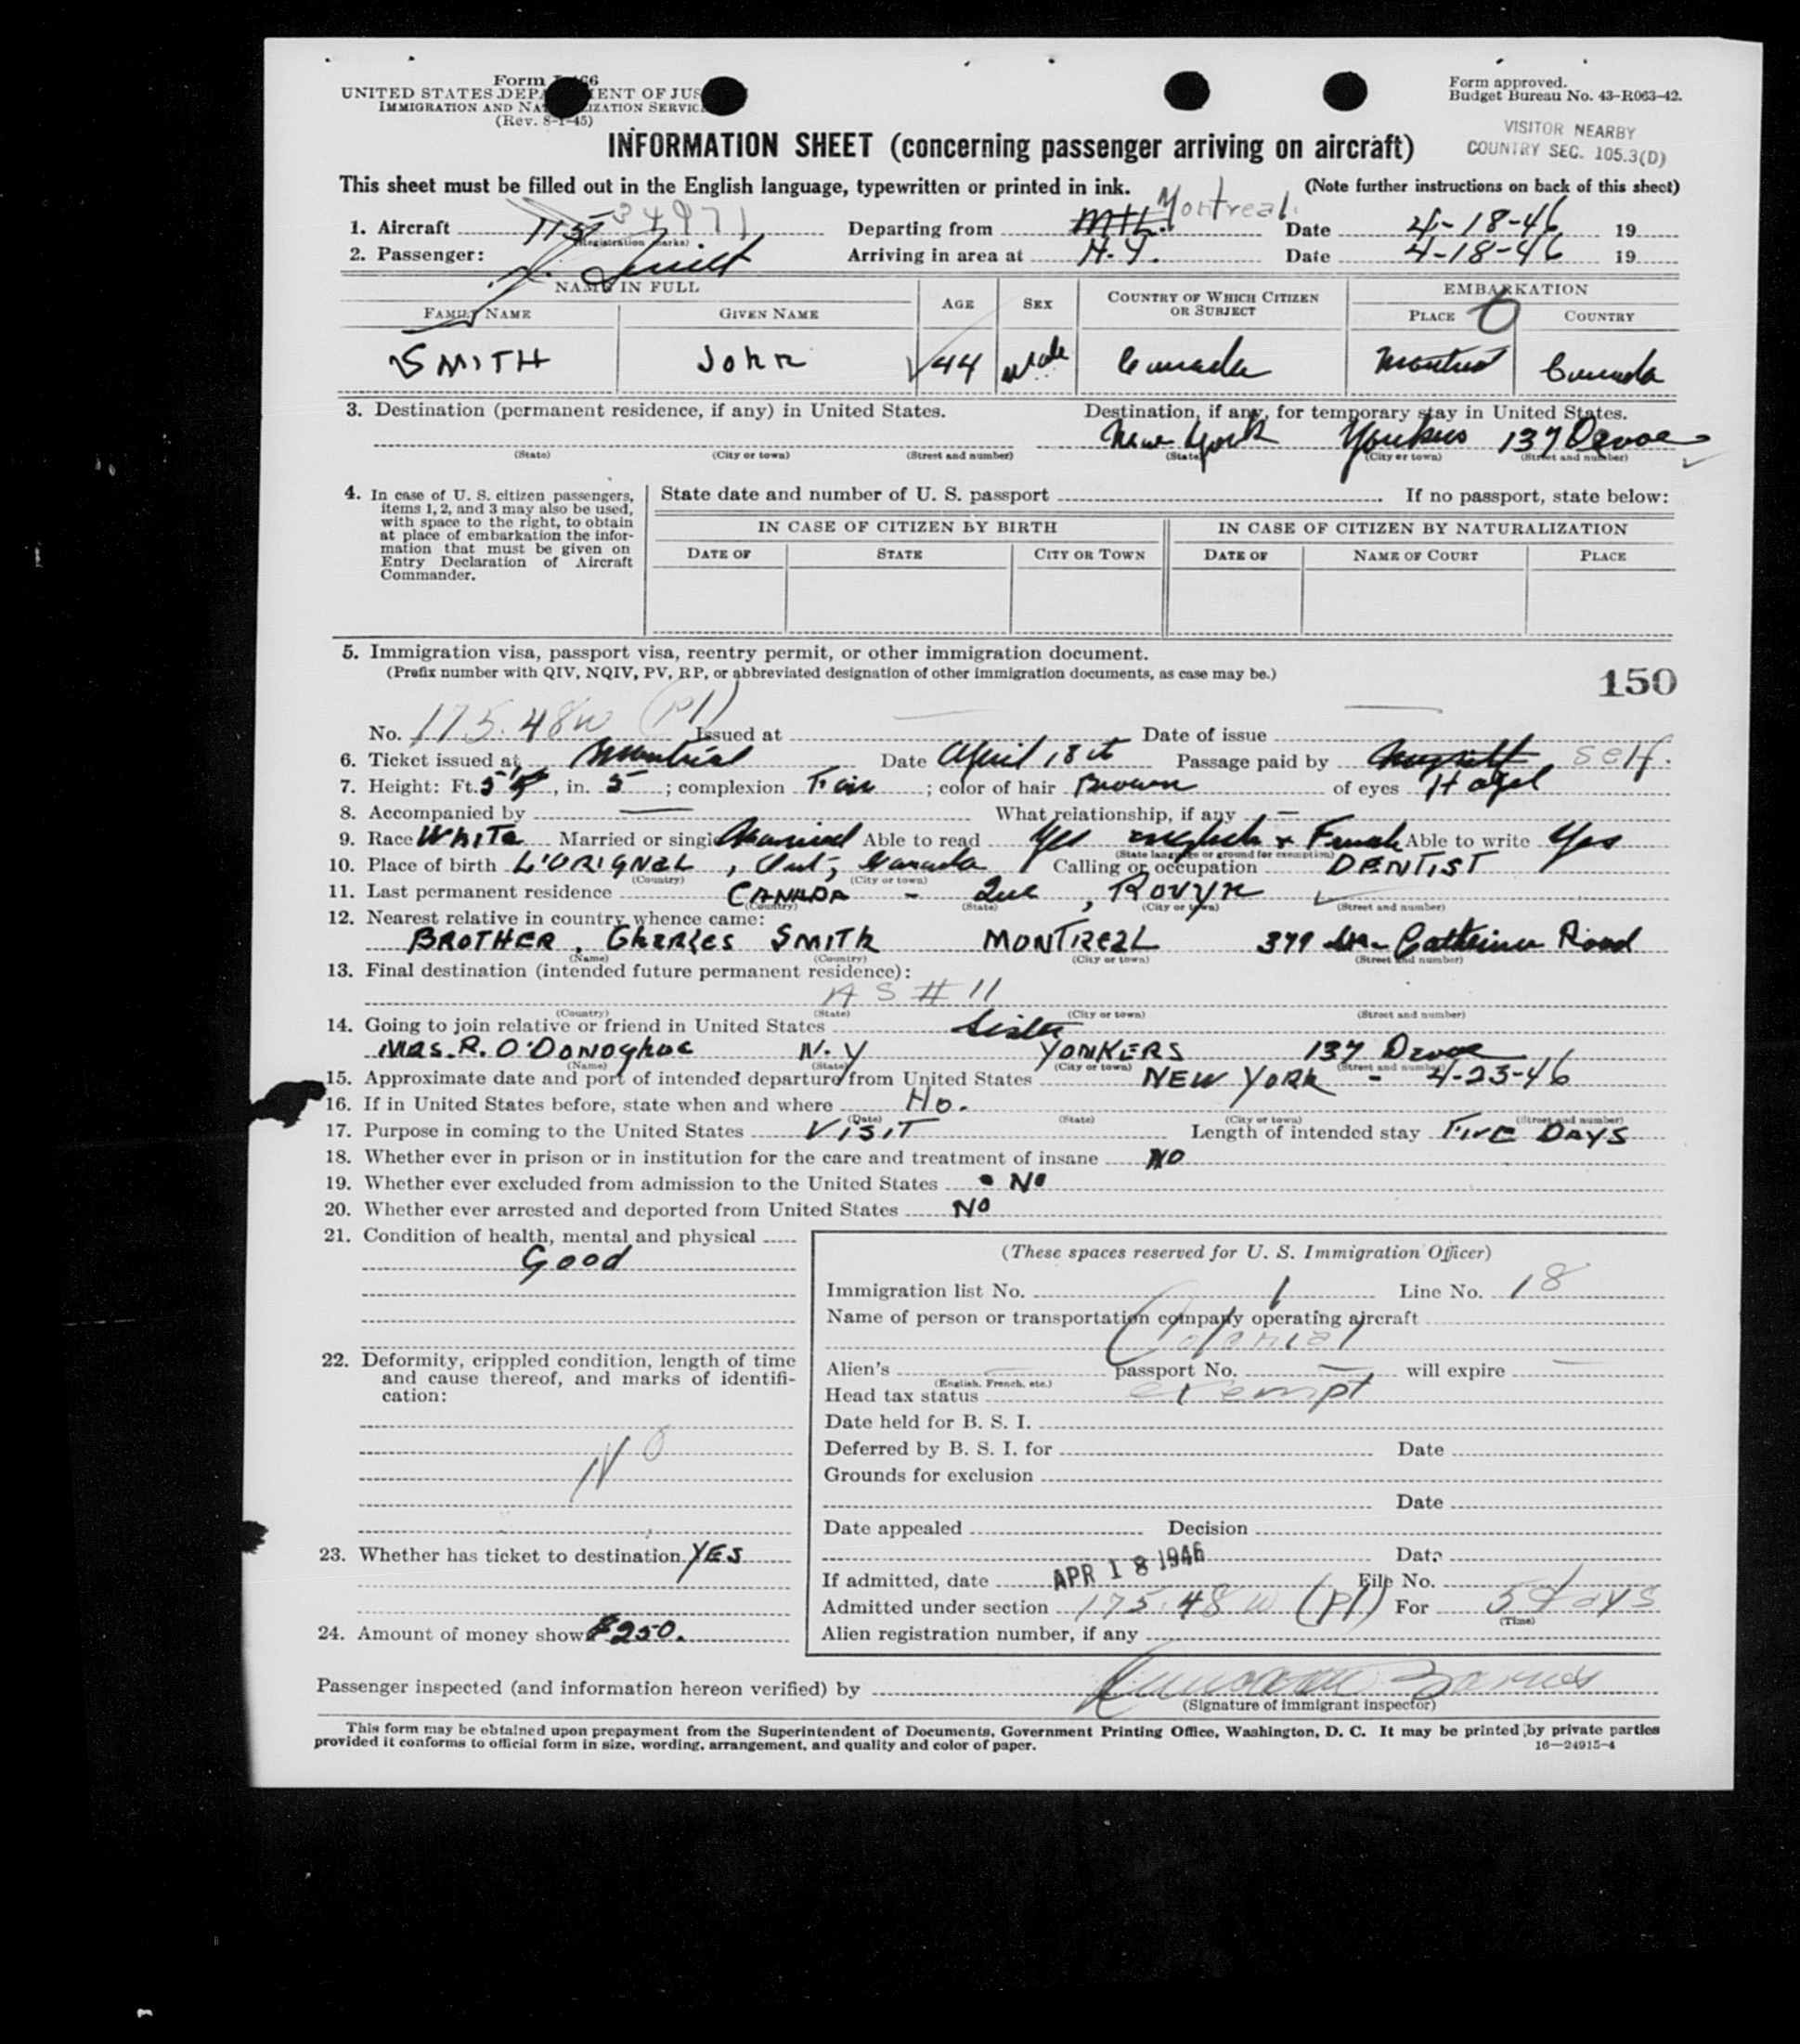 Form I-466
UNITED STATES DEPARTMENT OF JUSTICE
IMMIGRATION AND NATURALIZATION SERVICE
(Rev. 8-1-45)
Form approved.
Budget Bureau No. 43-R063-42.
VISITOR NEARBY
COUNTRY SEC. 105.3(D)
INFORMATION SHEET (concerning passenger arriving on aircraft)
This sheet must be filled out in the English language, typewritten or printed in ink. (Note further instructions on back of this sheet)
1. Aircraft 34971 (Registration marks) Departing from Mtl. Montreal Date 4-18-46 19
2. Passenger: J. Smith Arriving in area at N.Y. Date 4-18-46 19
NAME IN FULL AGE SEX COUNTRY OF WHICH CITIZEN OR SUBJECT EMBARKATION
FAMILY NAME GIVEN NAME PLACE COUNTRY
SMITH John 44 male Canada Montreal Canada
3. Destination (permanent residence, if any) in United States. Destination, if any, for temporary stay in United States.
New York Yonkers 137 Devoe
(State) (City or town) (Street and number) (State) (City or town) (Street and number)
4. In case of U. S. citizen passengers, items 1, 2, and 3 may also be used, with space to the right, to obtain at place of embarkation the information that must be given on Entry Declaration of Aircraft Commander.
State date and number of U. S. passport If no passport, state below:
IN CASE OF CITIZEN BY BIRTH IN CASE OF CITIZEN BY NATURALIZATION
DATE OF STATE CITY OR TOWN DATE OF NAME OF COURT PLACE
5. Immigration visa, passport visa, reentry permit, or other immigration document.
(Prefix number with QIV, NQIV, PV, RP, or abbreviated designation of other immigration documents, as case may be.)
150
No. 175.48w (P1) Issued at — Date of issue —
6. Ticket issued at Montreal Date April 18th Passage paid by self.
7. Height: Ft. 5, in. 5; complexion Fair; color of hair Brown of eyes Hazel
8. Accompanied by — What relationship, if any —
9. Race White Married or single Married Able to read Yes english & French Able to write Yes
(State language or ground for exemption)
10. Place of birth L'ORIGNAL, Ont, Canada Calling or occupation DENTIST
(Country) (City or town)
11. Last permanent residence CANADA - Que, ROUYN
(Country) (State) (City or town) (Street and number)
12. Nearest relative in country whence came:
BROTHER, Charles SMITH MONTREAL 379 Catherine Road
(Name) (Country) (City or town) (Street and number)
13. Final destination (intended future permanent residence):
AS # 11
(Country) (State) (City or town) (Street and number)
14. Going to join relative or friend in United States Sister
MRS. R. O'DONOGHUE N.Y YONKERS 137 Devoe
(Name) (State) (City or town) (Street and number)
15. Approximate date and port of intended departure from United States NEW YORK - 4-23-46
16. If in United States before, state when and where No.
(Date) (State) (City or town) (Street and number)
17. Purpose in coming to the United States VISIT Length of intended stay FIVE DAYS
18. Whether ever in prison or in institution for the care and treatment of insane NO
19. Whether ever excluded from admission to the United States NO
20. Whether ever arrested and deported from United States NO
21. Condition of health, mental and physical
Good
22. Deformity, crippled condition, length of time and cause thereof, and marks of identification:
NO
23. Whether has ticket to destination YES
24. Amount of money shown $250.
(These spaces reserved for U. S. Immigration Officer)
Immigration list No. 1 Line No. 18
Name of person or transportation company operating aircraft
Colonial
Alien's — passport No. — will expire —
(English, French, etc.)
Head tax status exempt
Date held for B. S. I.
Deferred by B. S. I. for Date
Grounds for exclusion
Date
Date appealed Decision
Date
If admitted, date APR 18 1946 File No.
Admitted under section 175.48w (P1) For 5 days
(Time)
Alien registration number, if any
Passenger inspected (and information hereon verified) by
(Signature of immigrant inspector)
This form may be obtained upon prepayment from the Superintendent of Documents, Government Printing Office, Washington, D. C. It may be printed by private parties
provided it conforms to official form in size, wording, arrangement, and quality and color of paper. 16—24915-4